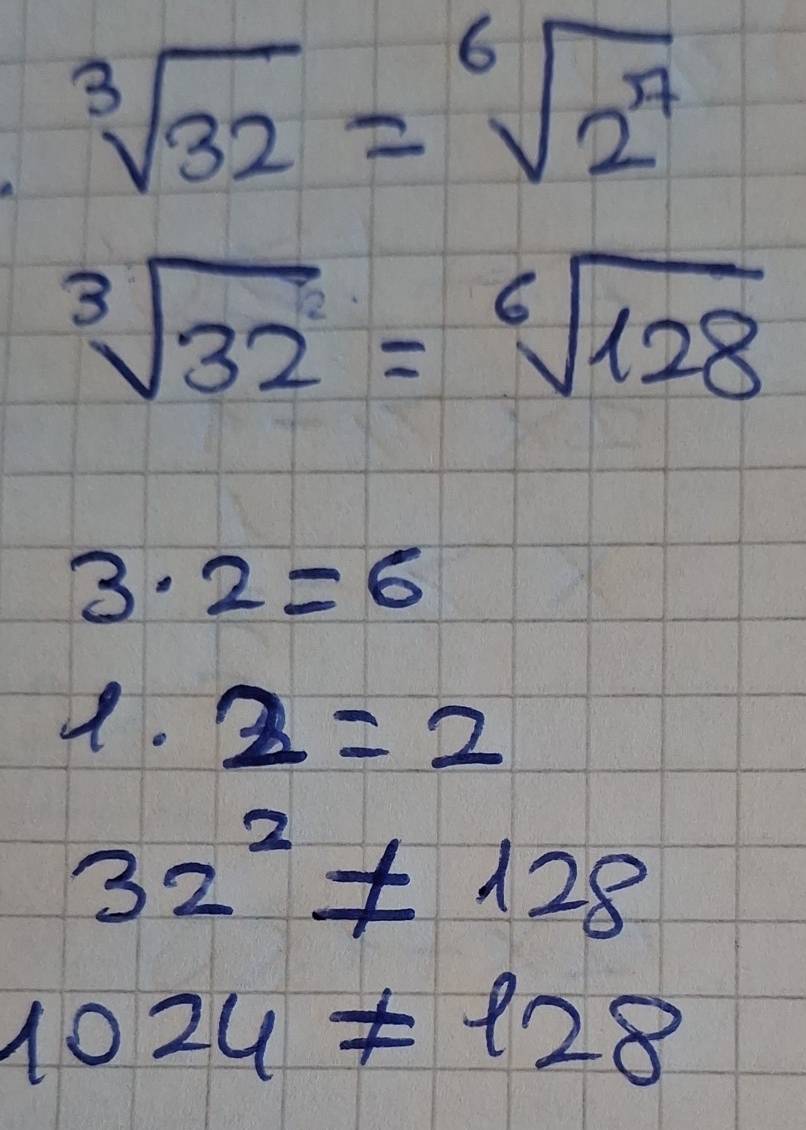 ∛32 = ⁶√2⁷
∛32 = ⁶√128
3 · 2 = 6
1 · 2 = 2
32² ≠ 128
1024 ≠ 128